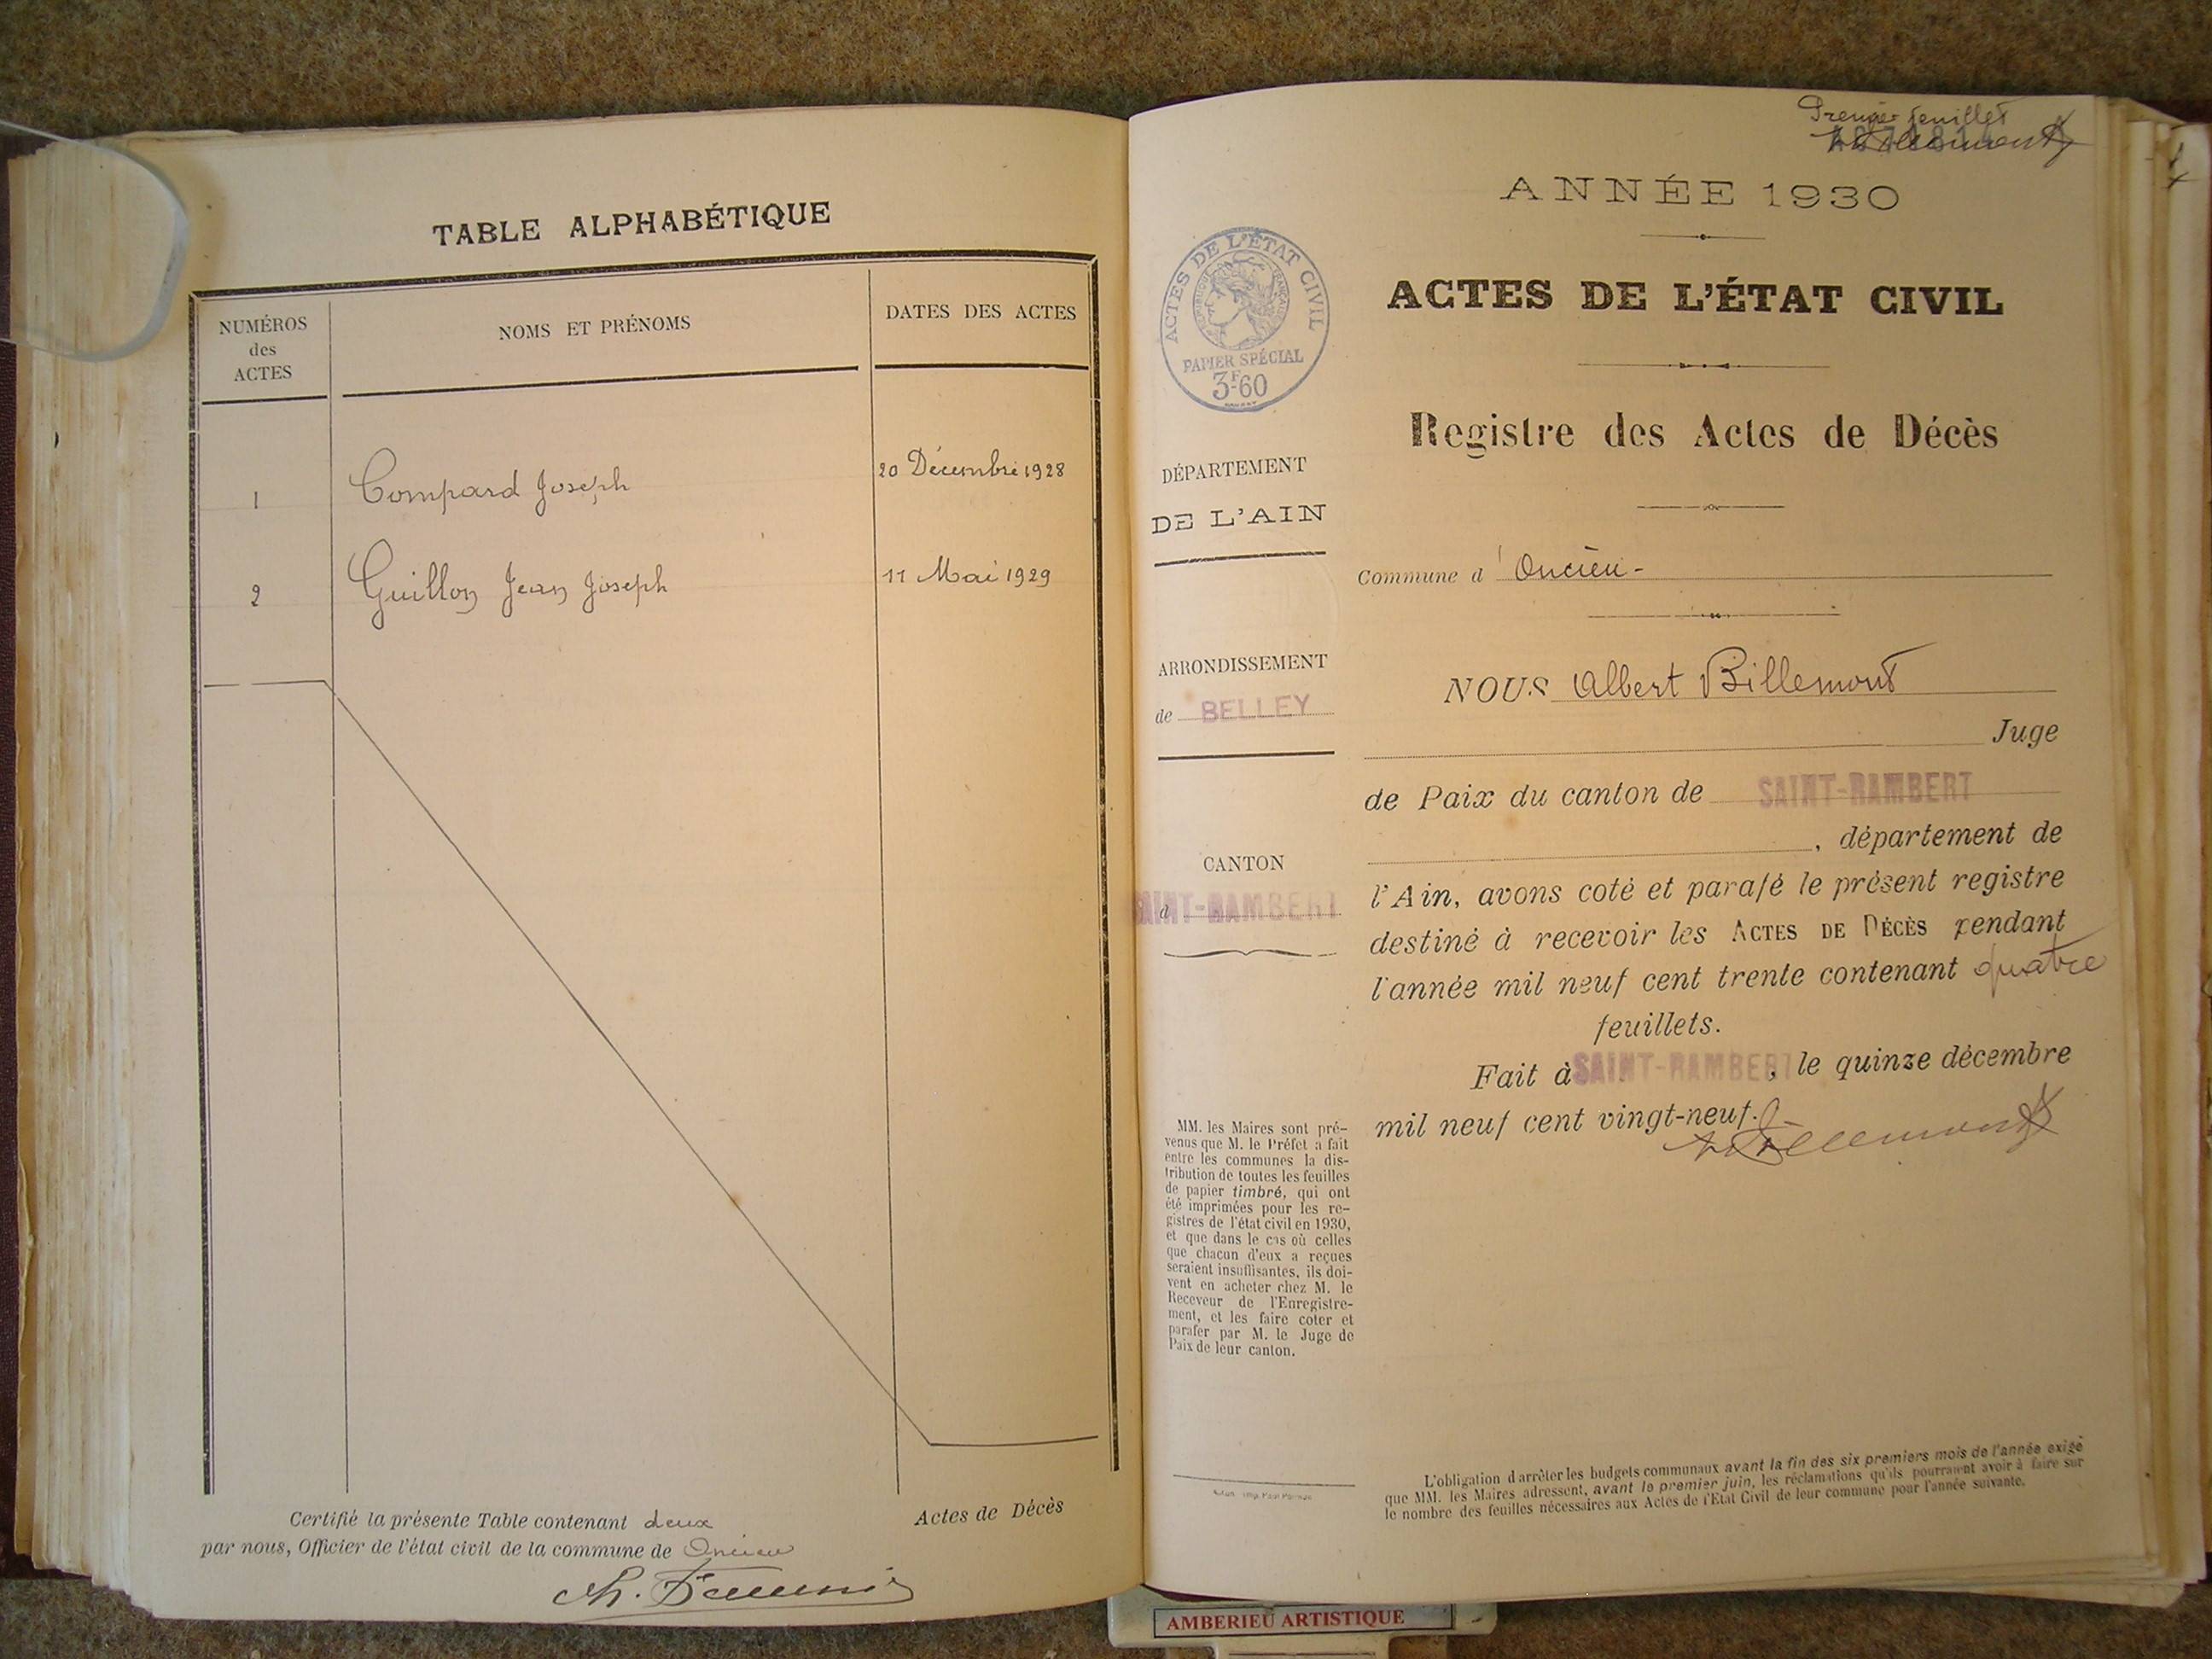 TABLE ALPHABÉTIQUE
NUMÉROS
des
ACTES
NOMS ET PRÉNOMS
DATES DES ACTES
1 Compard Joseph 20 Décembre 1928
2 Guillon Jean Joseph 11 Mai 1929
Certifié la présente Table contenant deux Actes de Décès
par nous, Officier de l'état civil de la commune de Oncieu
Premier feuillet
ANNÉE 1930
ACTES DE L'ÉTAT CIVIL
Registre des Actes de Décès
ACTES DE L'ÉTAT CIVIL
RÉPUBLIQUE FRANÇAISE
PAPIER SPÉCIAL
3F60
DÉPARTEMENT
DE L'AIN
ARRONDISSEMENT
de BELLEY
CANTON
d SAINT-RAMBERT
MM. les Maires sont pré-
venus que M. le Préfet a fait
entre les communes la dis-
tribution de toutes les feuilles
de papier timbré, qui ont
été imprimées pour les re-
gistres de l'état civil en 1930,
et que dans le cas où celles
que chacun d'eux a reçues
seraient insuffisantes, ils doi-
vent en acheter chez M. le
Receveur de l'Enregistre-
ment, et les faire coter et
parafer par M. le Juge de
Paix de leur canton.
Commune d' Oncieu-
NOUS Albert Billemont
Juge
de Paix du canton de SAINT-RAMBERT
, département de
l'Ain, avons coté et parafé le présent registre
destiné à recevoir les ACTES DE DÉCÈS pendant
l'année mil neuf cent trente contenant quatre
feuillets.
Fait à SAINT-RAMBERT, le quinze décembre
mil neuf cent vingt-neuf.
L'obligation d'arrêter les budgets communaux avant la fin des six premiers mois de l'année exige
que MM. les Maires adressent, avant le premier juin, les réclamations qu'ils pourraient avoir à faire sur
le nombre des feuilles nécessaires aux Actes de l'Etat Civil de leur commune pour l'année suivante.
AMBERIEU ARTISTIQUE